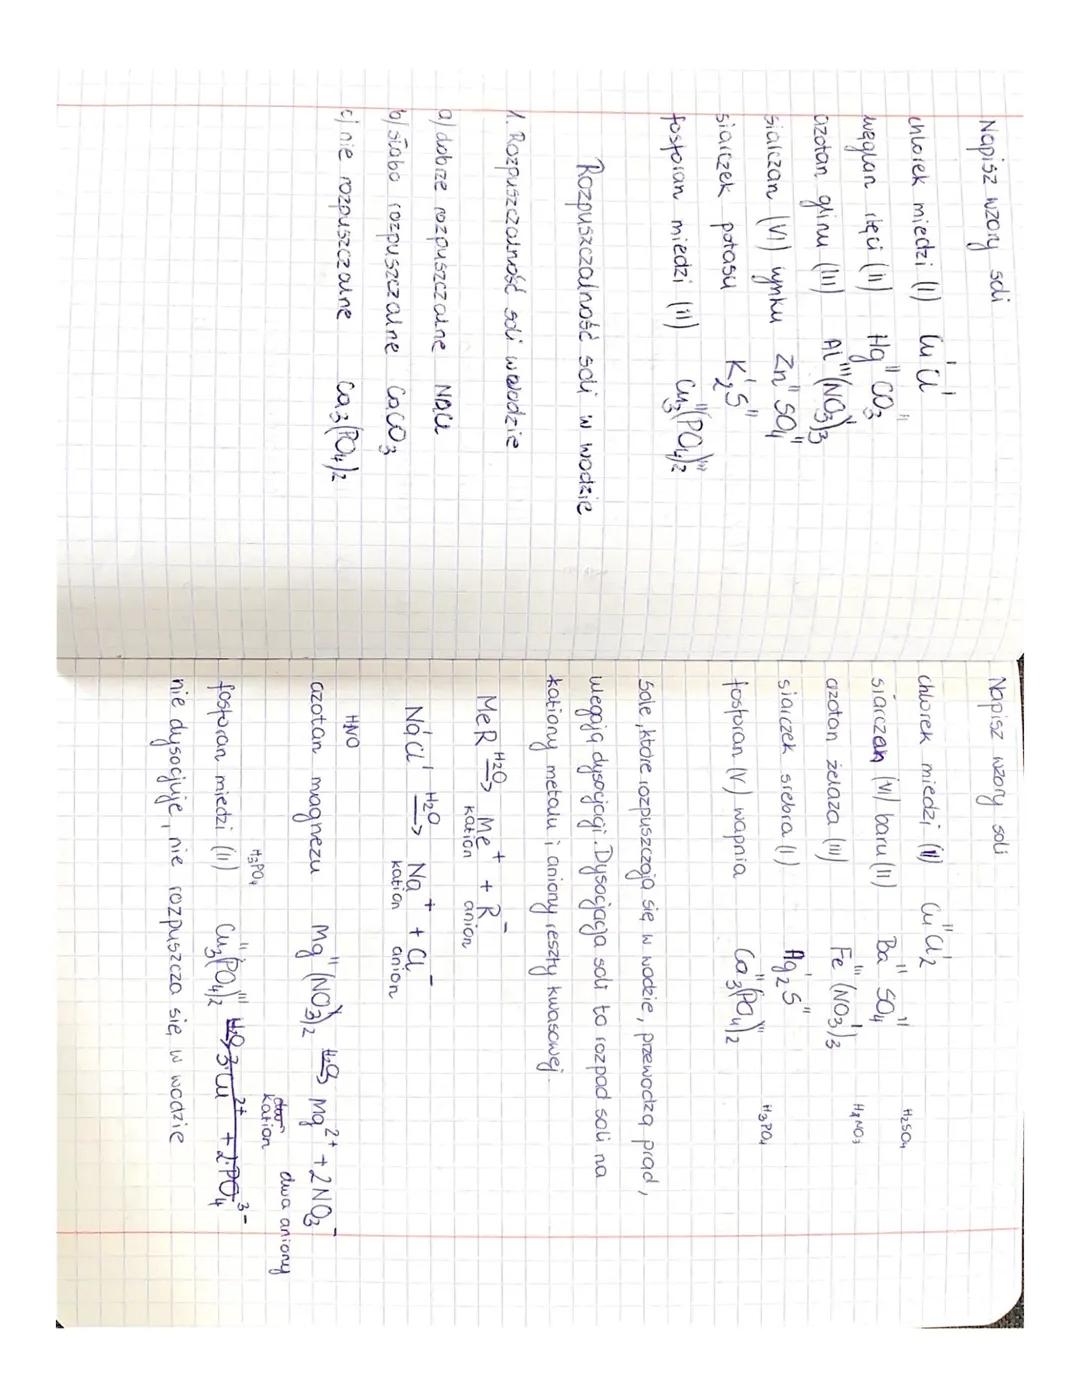 Napisz wzory soli
chlorek miedzi (I) CuᴵClᴵ
węglan rtęci (II) HgᴵᴵCO₃ᴵᴵ
azotan glinu (III) Alᴵᴵᴵ(NO₃)ᴵ₃
siarczan (VI) cynku ZnᴵᴵSO₄ᴵᴵ
siarczek potasu Kᴵ₂Sᴵᴵ
fosforan miedzi (II) Cu₃ᴵᴵ(PO₄)₂ᴵᴵᴵ
Rozpuszczalność soli w wodzie
1. Rozpuszczalność soli w wodzie
a) dobrze rozpuszczalne NaCl
b) słabo rozpuszczalne CaCO₃
c) nie rozpuszczalne Ca₃(PO₄)₂
Napisz wzory soli
chlorek miedzi (II) CuᴵᴵClᴵ₂
siarczan (VI) baru (II) BaᴵᴵSO₄ᴵᴵ H₂SO₄
azotan żelaza (III) Feᴵᴵᴵ(NO₃ᴵ)₃ HNO₃
siarczek srebra (I) Agᴵ₂Sᴵᴵ
fosforan (V) wapnia Ca₃ᴵᴵ(PO₄)ᴵᴵᴵ₂ H₃PO₄
Sole, które rozpuszczają się w wodzie, przewodzą prąd,
ulegają dysocjacji. Dysocjacja soli to rozpad soli na
kationy metalu i aniony reszty kwasowej.
MeR H₂O→ Me⁺ + R⁻
kation anion
NaᴵClᴵ H₂O→ Na⁺ + Cl⁻
kation anion
HNO
azotan magnezu Mgᴵᴵ(NO₃)ᴵ₂ H₂O→ Mg²⁺ + 2NO₃⁻
kation dwa aniony
H₃PO₄
fosforan miedzi (II) Cu₃ᴵᴵ(PO₄)₂ᴵᴵᴵ H₂O→ 3Cu²⁺ + 2·PO₄³⁻
nie dysocjuje, nie rozpuszcza się w wodzie